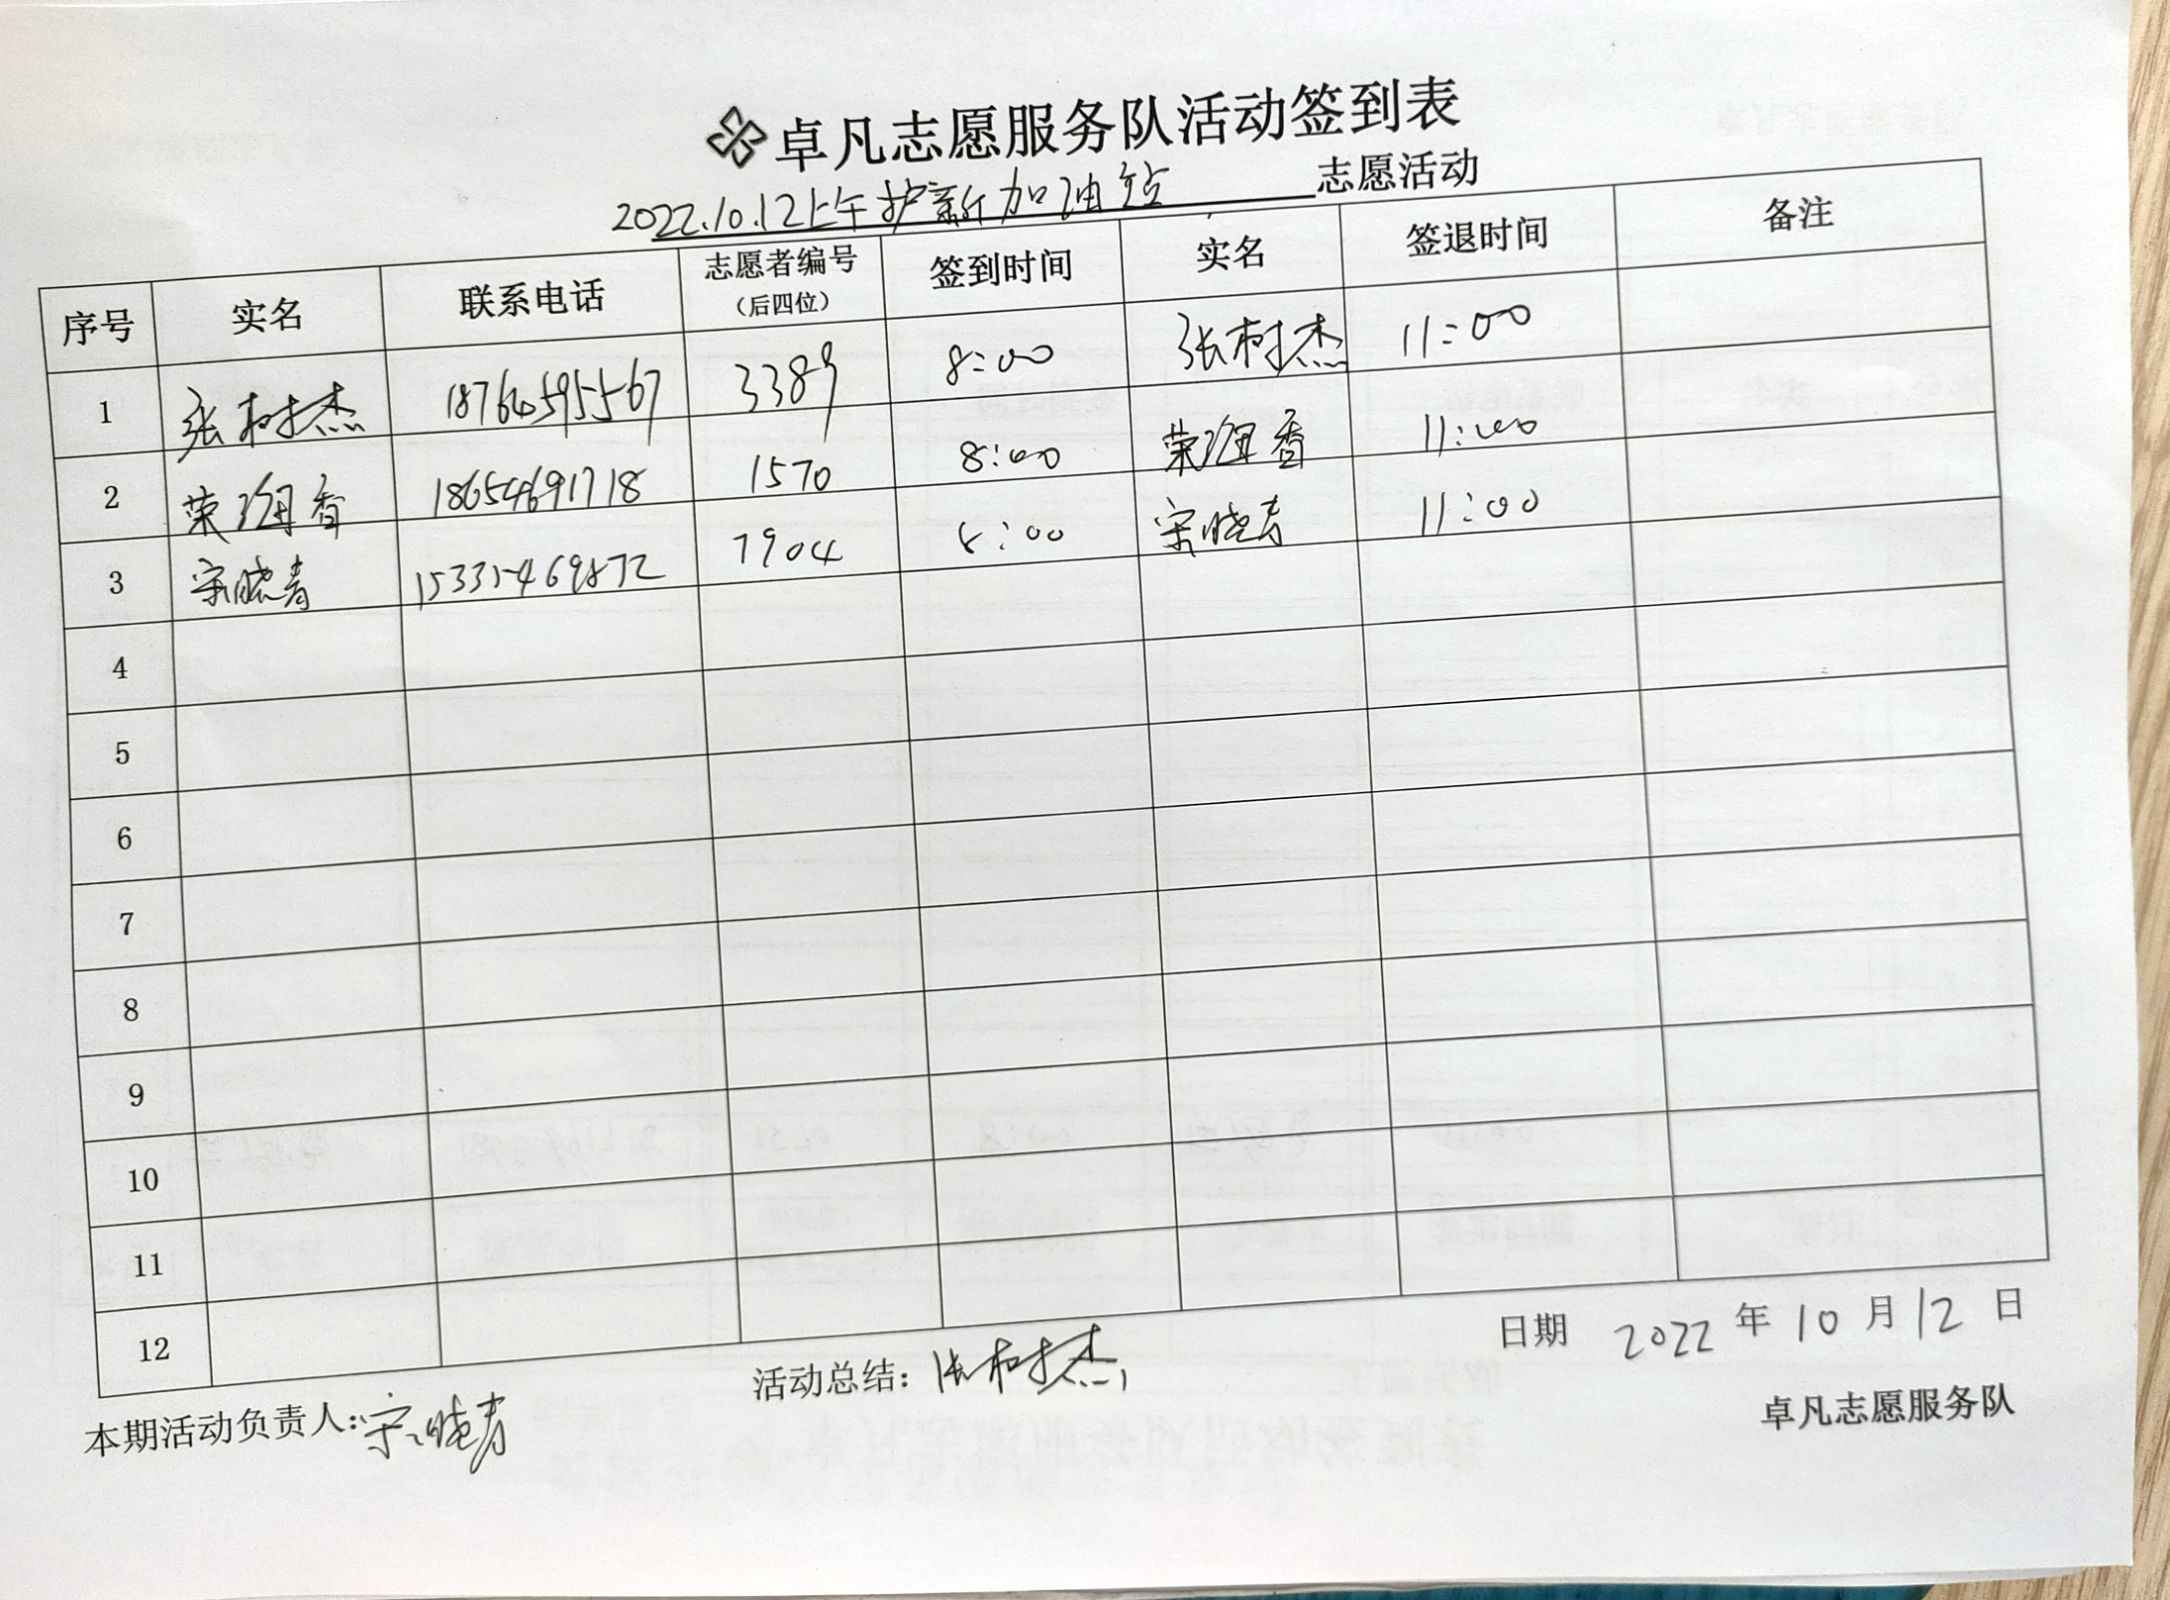 卓凡志愿服务队活动签到表
2022.10.12上午护新加油站 志愿活动
序号 实名 联系电话 志愿者编号（后四位） 签到时间 实名 签退时间 备注
1 张树杰 18764595567 3389 8:00 张树杰 11:00
2 荣香 18654691718 1570 8:00 荣香 11:00
3 宋晓青 15335469872 7904 8:00 宋晓青 11:00
4
5
6
7
8
9
10
11
12
本期活动负责人：宋晓青 活动总结：张树杰 日期 2022年10月12日
卓凡志愿服务队